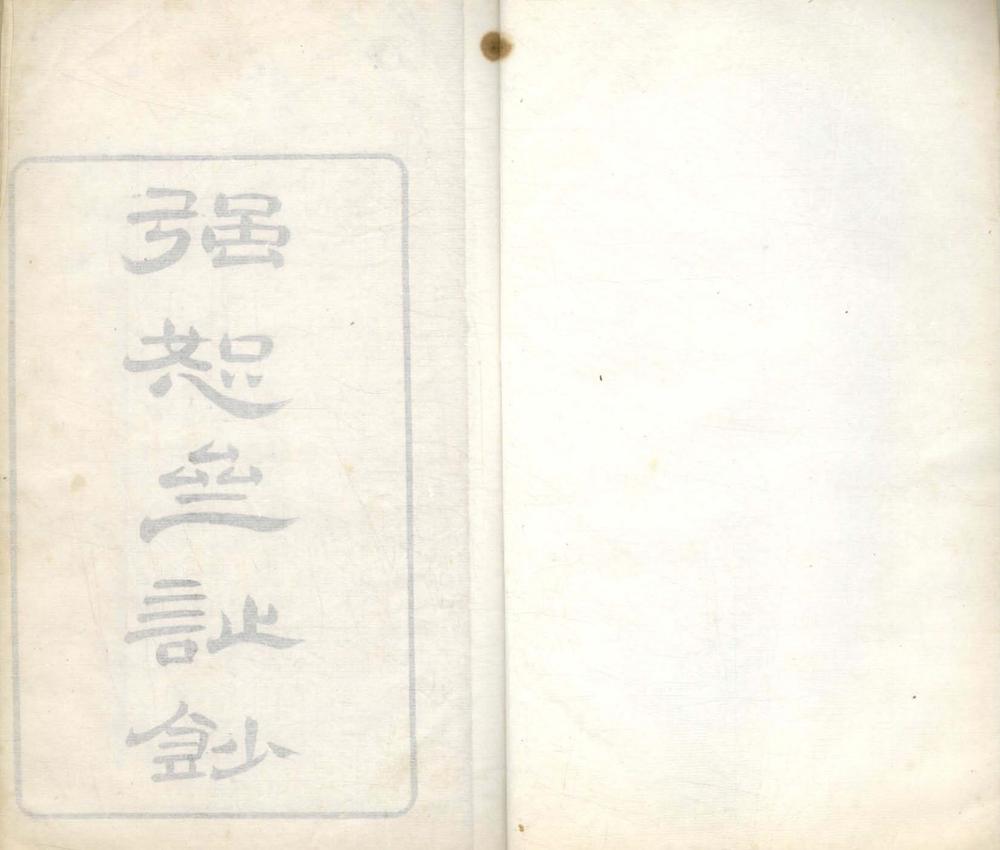 强恕齋詩鈔